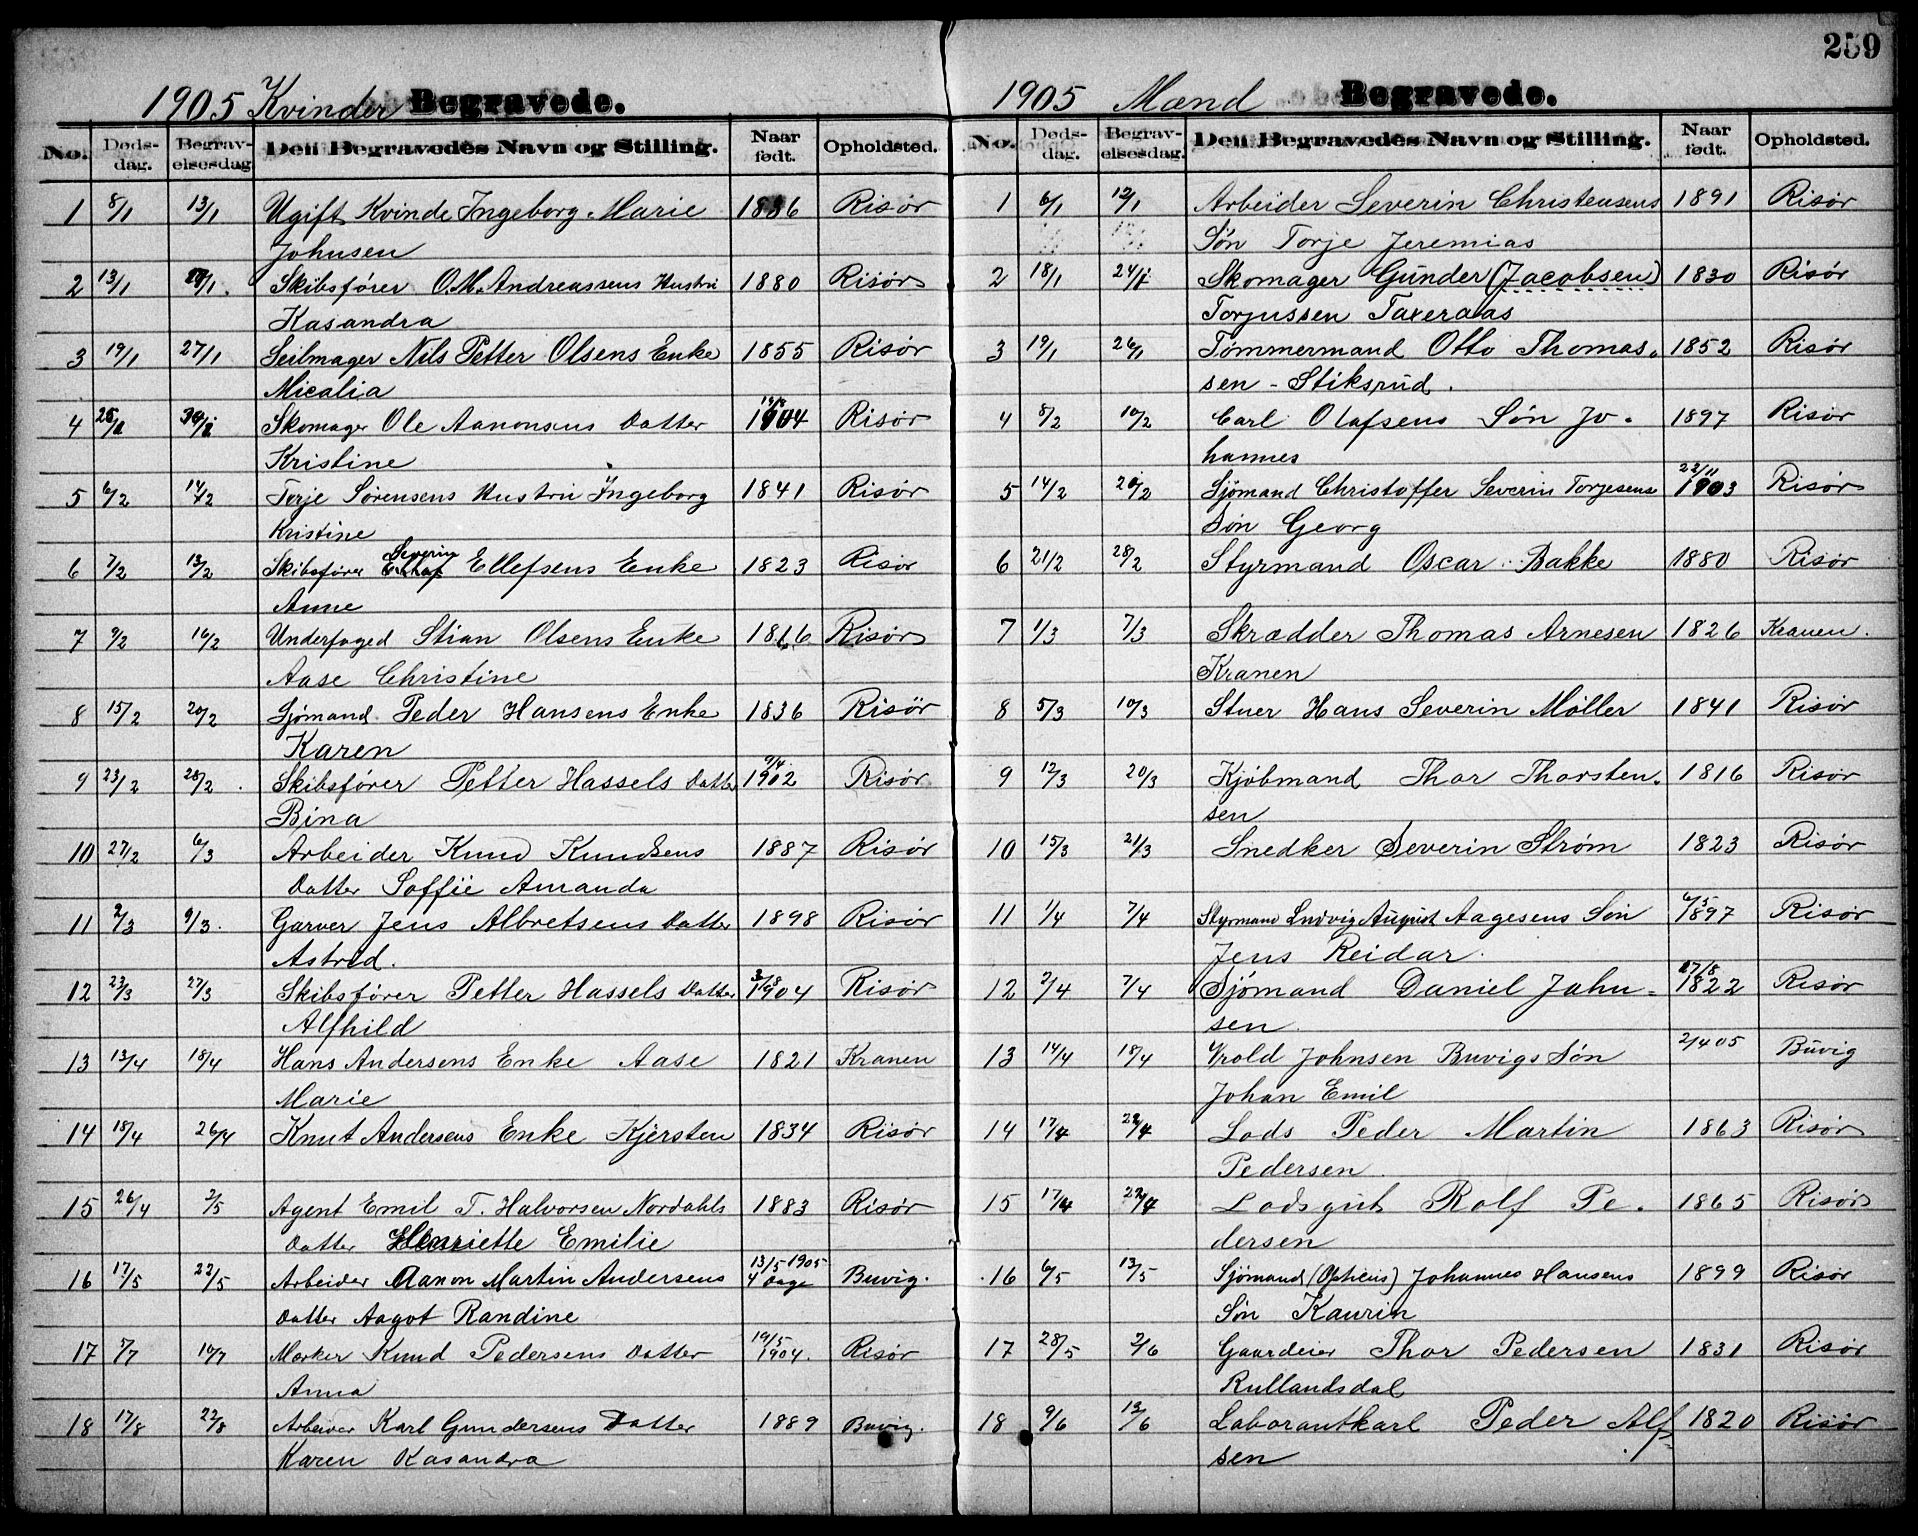 259
1905 Kvinder Begravede.
No. Døds-dag. Begrav-elsesdag Den Begravedes Navn og Stilling. Naar født. Opholdsted.
1 8/1 13/1 Ugift Kvinde Ingeborg Marie 1836 Risør
Johnsen
2 13/1 Skibsfører O.M. Andreassens Hustru 1880 Risør
Kasandra
3 19/1 27/1 Seilmager Nils Petter Olsens Enke 1855 Risør
Micalia
4 Skomager Ole Aanonsens Datter 1904 Risør
Kristine
5 6/2 14/2 Terje Sørensens Hustru Ingeborg 1841 Risør
Kristine
6 7/2 13/2 Skibsfører Severin Ellefsens Enke 1823 Risør
Anne
7 9/2 16/2 Underfoged Stian Olsens Enke 1816 Risør
Aase Christine
8 15/2 20/2 Sjømand Peder Hansens Enke 1836 Risør
Karen
9 23/2 28/2 Skibsfører Petter Hassels Datter 9/4 1902 Risør
Bina
10 27/2 6/3 Arbeider Knud Knudsens 1887 Risør
Datter Soffie Amanda
11 2/3 9/3 Garver Jens Albretsens Datter 1898 Risør
Astrid.
12 23/3 27/3 Skibsfører Petter Hassels Datter 3/8 1904 Risør
Alfhild
13 13/4 18/4 Hans Andersens Enke Aase 1821 Kranen
Marie
14 18/4 26/4 Knut Andersens Enke Kjersten 1834 Risør
15 26/4 2/5 Agent Emil T. Halvorsen Nordahls 1883 Risør
Datter Henriette Emilie
16 17/5 22/5 Arbeider Aanon Martin Andersens 13/5 1905 4 Dage Buvig.
Datter Aagot Randine
17 7/7 10/7 Mærker Knud Pedersens Datter 19/5 1904. Risør
Anna
18 17/8 22/8 Arbeider Karl Gundersens Datter 1889 Buvig.
Karen Kasandra
1905 Mænd Begravede.
No. Døds-dag. Begrav-elsesdag. Den Begravedes Navn og Stilling. Naar født. Opholdsted.
1 6/1 12/1 Arbeider Severin Christensens 1891 Risør
Søn Torje Jeremias
2 18/1 24/1 Skomager Gunder (Jacobsen) 1830 Risør
Torjussen Taxeraas
3 19/1 26/1 Tømmermand Otto Thomas- 1852 Risør
sen - Stiksrud.
4 8/2 10/2 Carl Olafsens Søn Jo- 1897 Risør
hannes
5 14/2 20/2 Sjømand Christoffer Severin Torjesens 22/11 1903 Risør
Søn Georg
6 21/2 28/2 Styrmand Oscar Bakke 1880 Risør
7 1/3 7/3 Skrædder Thomas Arnesen 1826 Kranen.
Kranen
8 5/3 10/3 Stuer Hans Severin Møller 1841 Risør
9 12/3 20/3 Kjøbmand Thor Thorsten- 1816 Risør
sen
10 15/3 21/3 Snedker Severin Strøm 1823 Risør
11 1/4 7/4 Styrmand Ludvig August Aagesens Søn 6/5 1897 Risør
Jens Reidar.
12 2/4 7/4 Sjømand Daniel Jahn- 17/8 1822 Risør
sen.
13 14/4 18/4 Vrold Johnsen Buvigs Søn 2/4 05 Buvig
Johan Emil
14 17/4 Lods Peder Martin 1863 Risør
Pedersen.
15 17/4 Lodsgut Rolf Pe- 1865 Risør
dersen
16 6/5 13/5 Sjømand (Opticus) Johannes Hansens 1899 Risør
Søn Kaurin
17 28/5 2/6 Gaardeier Thor Pedersen 1831 Risør
Rullandsdal
18 9/6 12/6 Laborantkarl Peder Alf- 1820 Risør
sen